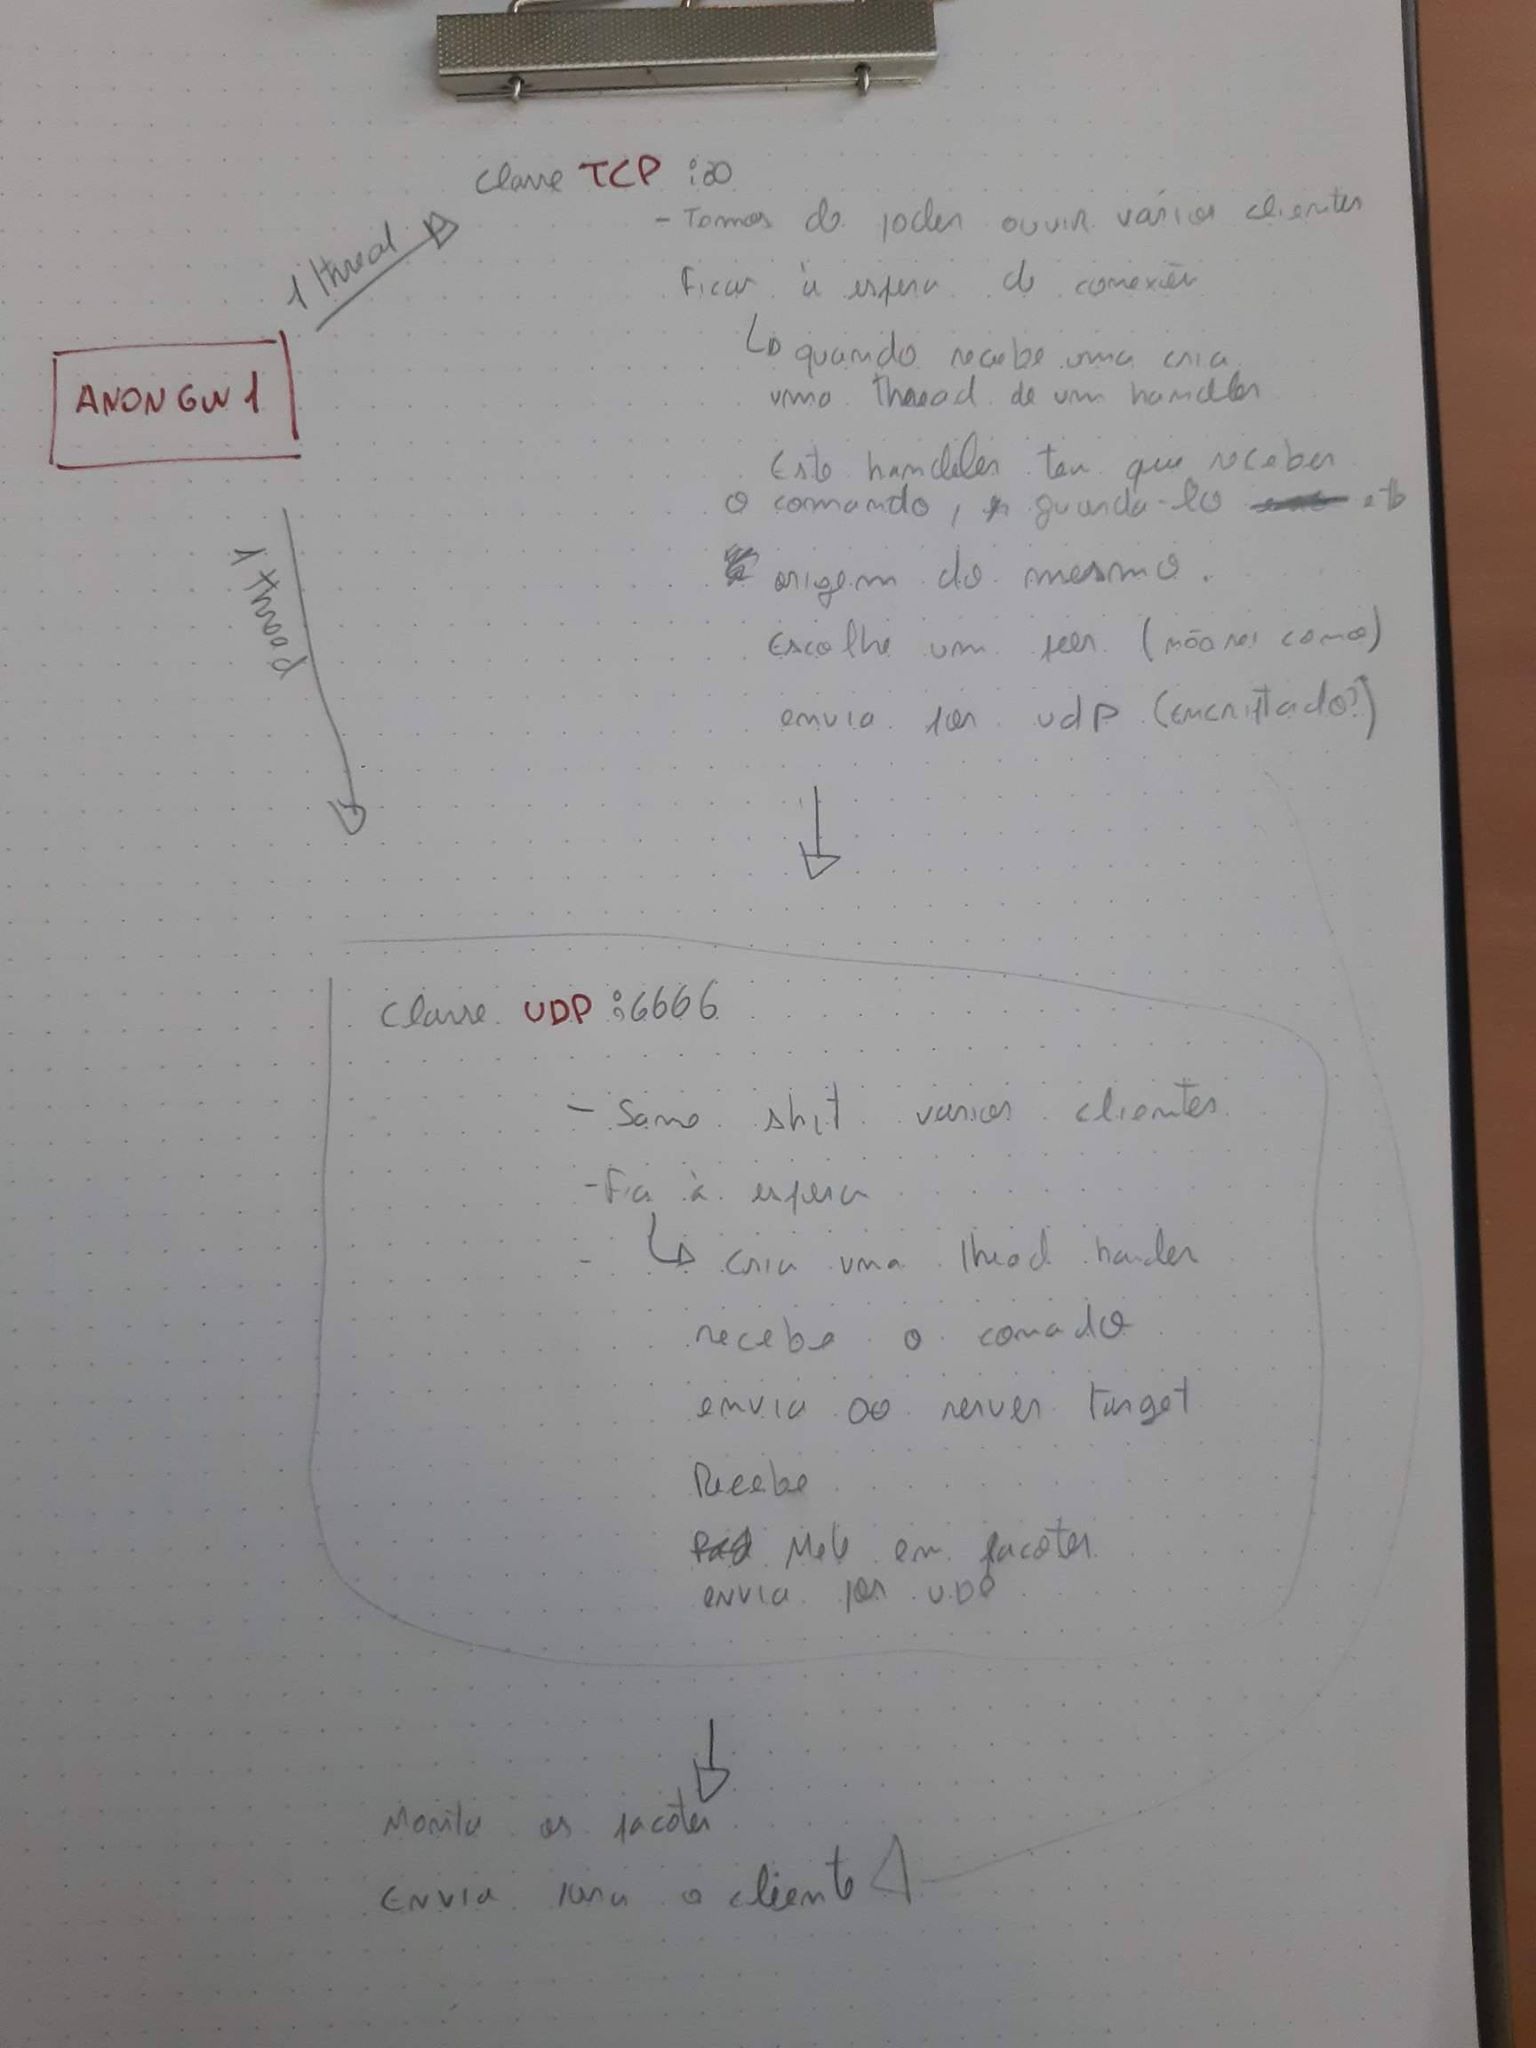 Classe TCP :80
- Temos de poder ouvir vários clientes
1 thread
Ficar à espera de conexão
↳ quando recebe uma cria
ANON GW 1
uma thread de um handler
Este handeler tem que receber
o comando, guarda-lo
origem do mesmo.
1 thread
Escolhe um peer (não sei como)
envia por udp (encriptado?)
Classe UDP :6666
- Same shit varios clientes
- Fica à espera
- ↳ cria uma thead hander
recebe o comado
envia ao server target
Recebe
Mete em pacotes
envia por UDP
Monta os pacotes
Envia para o cliente